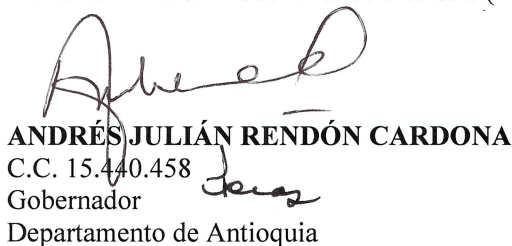 ANDRÉS JULIÁN RENDÓN CARDONA
C.C. 15.440.458
Gobernador
Departamento de Antioquia